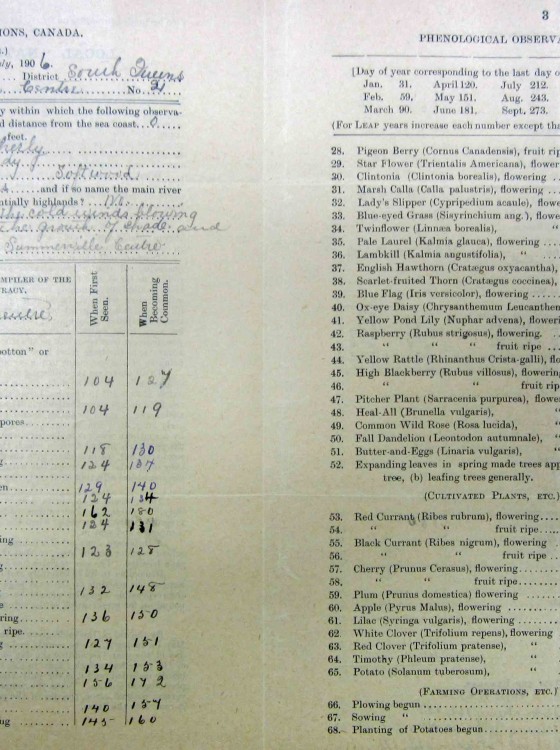 IONS, CANADA.
ly, 1906.
District South Queens
Centre No. 21
y within which the following observa-
d distance from the sea coast. 0
feet.
Softwood
and if so name the main river
entially highlands? No.
the cold winds blowing
and
Summerville Centre
MPILER OF THE
RACY.
When First
Seen.
When
Becoming
Common.
ootton" or
104 127
104 119
pores.
118 130
124 137
en 129 140
124 134
162 180
124 131
ing
123 128
132 148
ring 136 150
ripe.
127 151
134 153
156 172
140 157
ng 145 160
3
PHENOLOGICAL OBSERVA
[Day of year corresponding to the last day o
Jan. 31. April 120. July 212.
Feb. 59. May 151. Aug. 243.
March 90. June 181. Sept. 273.
(For LEAP years increase each number except tha
28. Pigeon Berry (Cornus Canadensis), fruit rip
29. Star Flower (Trientalis Americana), flower
30. Clintonia (Clintonia borealis), flowering
31. Marsh Calla (Calla palustris), flowering
32. Lady's Slipper (Cypripedium acaule), flowe
33. Blue-eyed Grass (Sisyrinchium ang.), flowe
34. Twinflower (Linnæa borealis), "
35. Pale Laurel (Kalmia glauca), flowering
36. Lambkill (Kalmia angustifolia), "
37. English Hawthorn (Cratægus oxyacantha),
38. Scarlet-fruited Thorn (Cratægus coccinea),
39. Blue Flag (Iris versicolor), flowering
40. Ox-eye Daisy (Chrysanthemum Leucanthem
41. Yellow Pond Lily (Nuphar advena), flowerin
42. Raspberry (Rubus strigosus), flowering.
43. " " fruit ripe
44. Yellow Rattle (Rhinanthus Crista-galli), flo
45. High Blackberry (Rubus villosus), flowering
46. " " fruit ripe.
47. Pitcher Plant (Sarracenia purpurea), flower
48. Heal-All (Brunella vulgaris), "
49. Common Wild Rose (Rosa lucida), "
50. Fall Dandelion (Leontodon autumnale), "
51. Butter-and-Eggs (Linaria vulgaris), "
52. Expanding leaves in spring made trees app
tree, (b) leafing trees generally.
(CULTIVATED PLANTS, ETC.)
53. Red Currant (Ribes rubrum), flowering
54. " " fruit ripe
55. Black Currant (Ribes nigrum), flowering
56. " " fruit ripe
57. Cherry (Prunus Cerasus), flowering
58. " " fruit ripe
59. Plum (Prunus domestica) flowering
60. Apple (Pyrus Malus), flowering
61. Lilac (Syringa vulgaris), flowering
62. White Clover (Trifolium repens), flowering
63. Red Clover (Trifolium pratense), "
64. Timothy (Phleum pratense), "
65. Potato (Solanum tuberosum), "
(FARMING OPERATIONS, ETC.)
66. Plowing begun
67. Sowing "
68. Planting of Potatoes begun